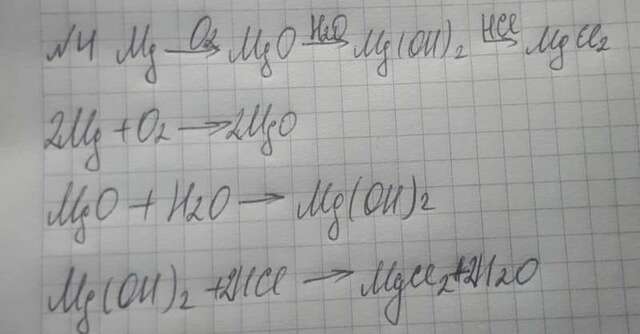 №4 Mg —O2→ MgO —H2O→ Mg(OH)2 —HCl→ MgCl2
2Mg + O2 → 2MgO
MgO + H2O → Mg(OH)2
Mg(OH)2 + 2HCl → MgCl2 + 2H2O